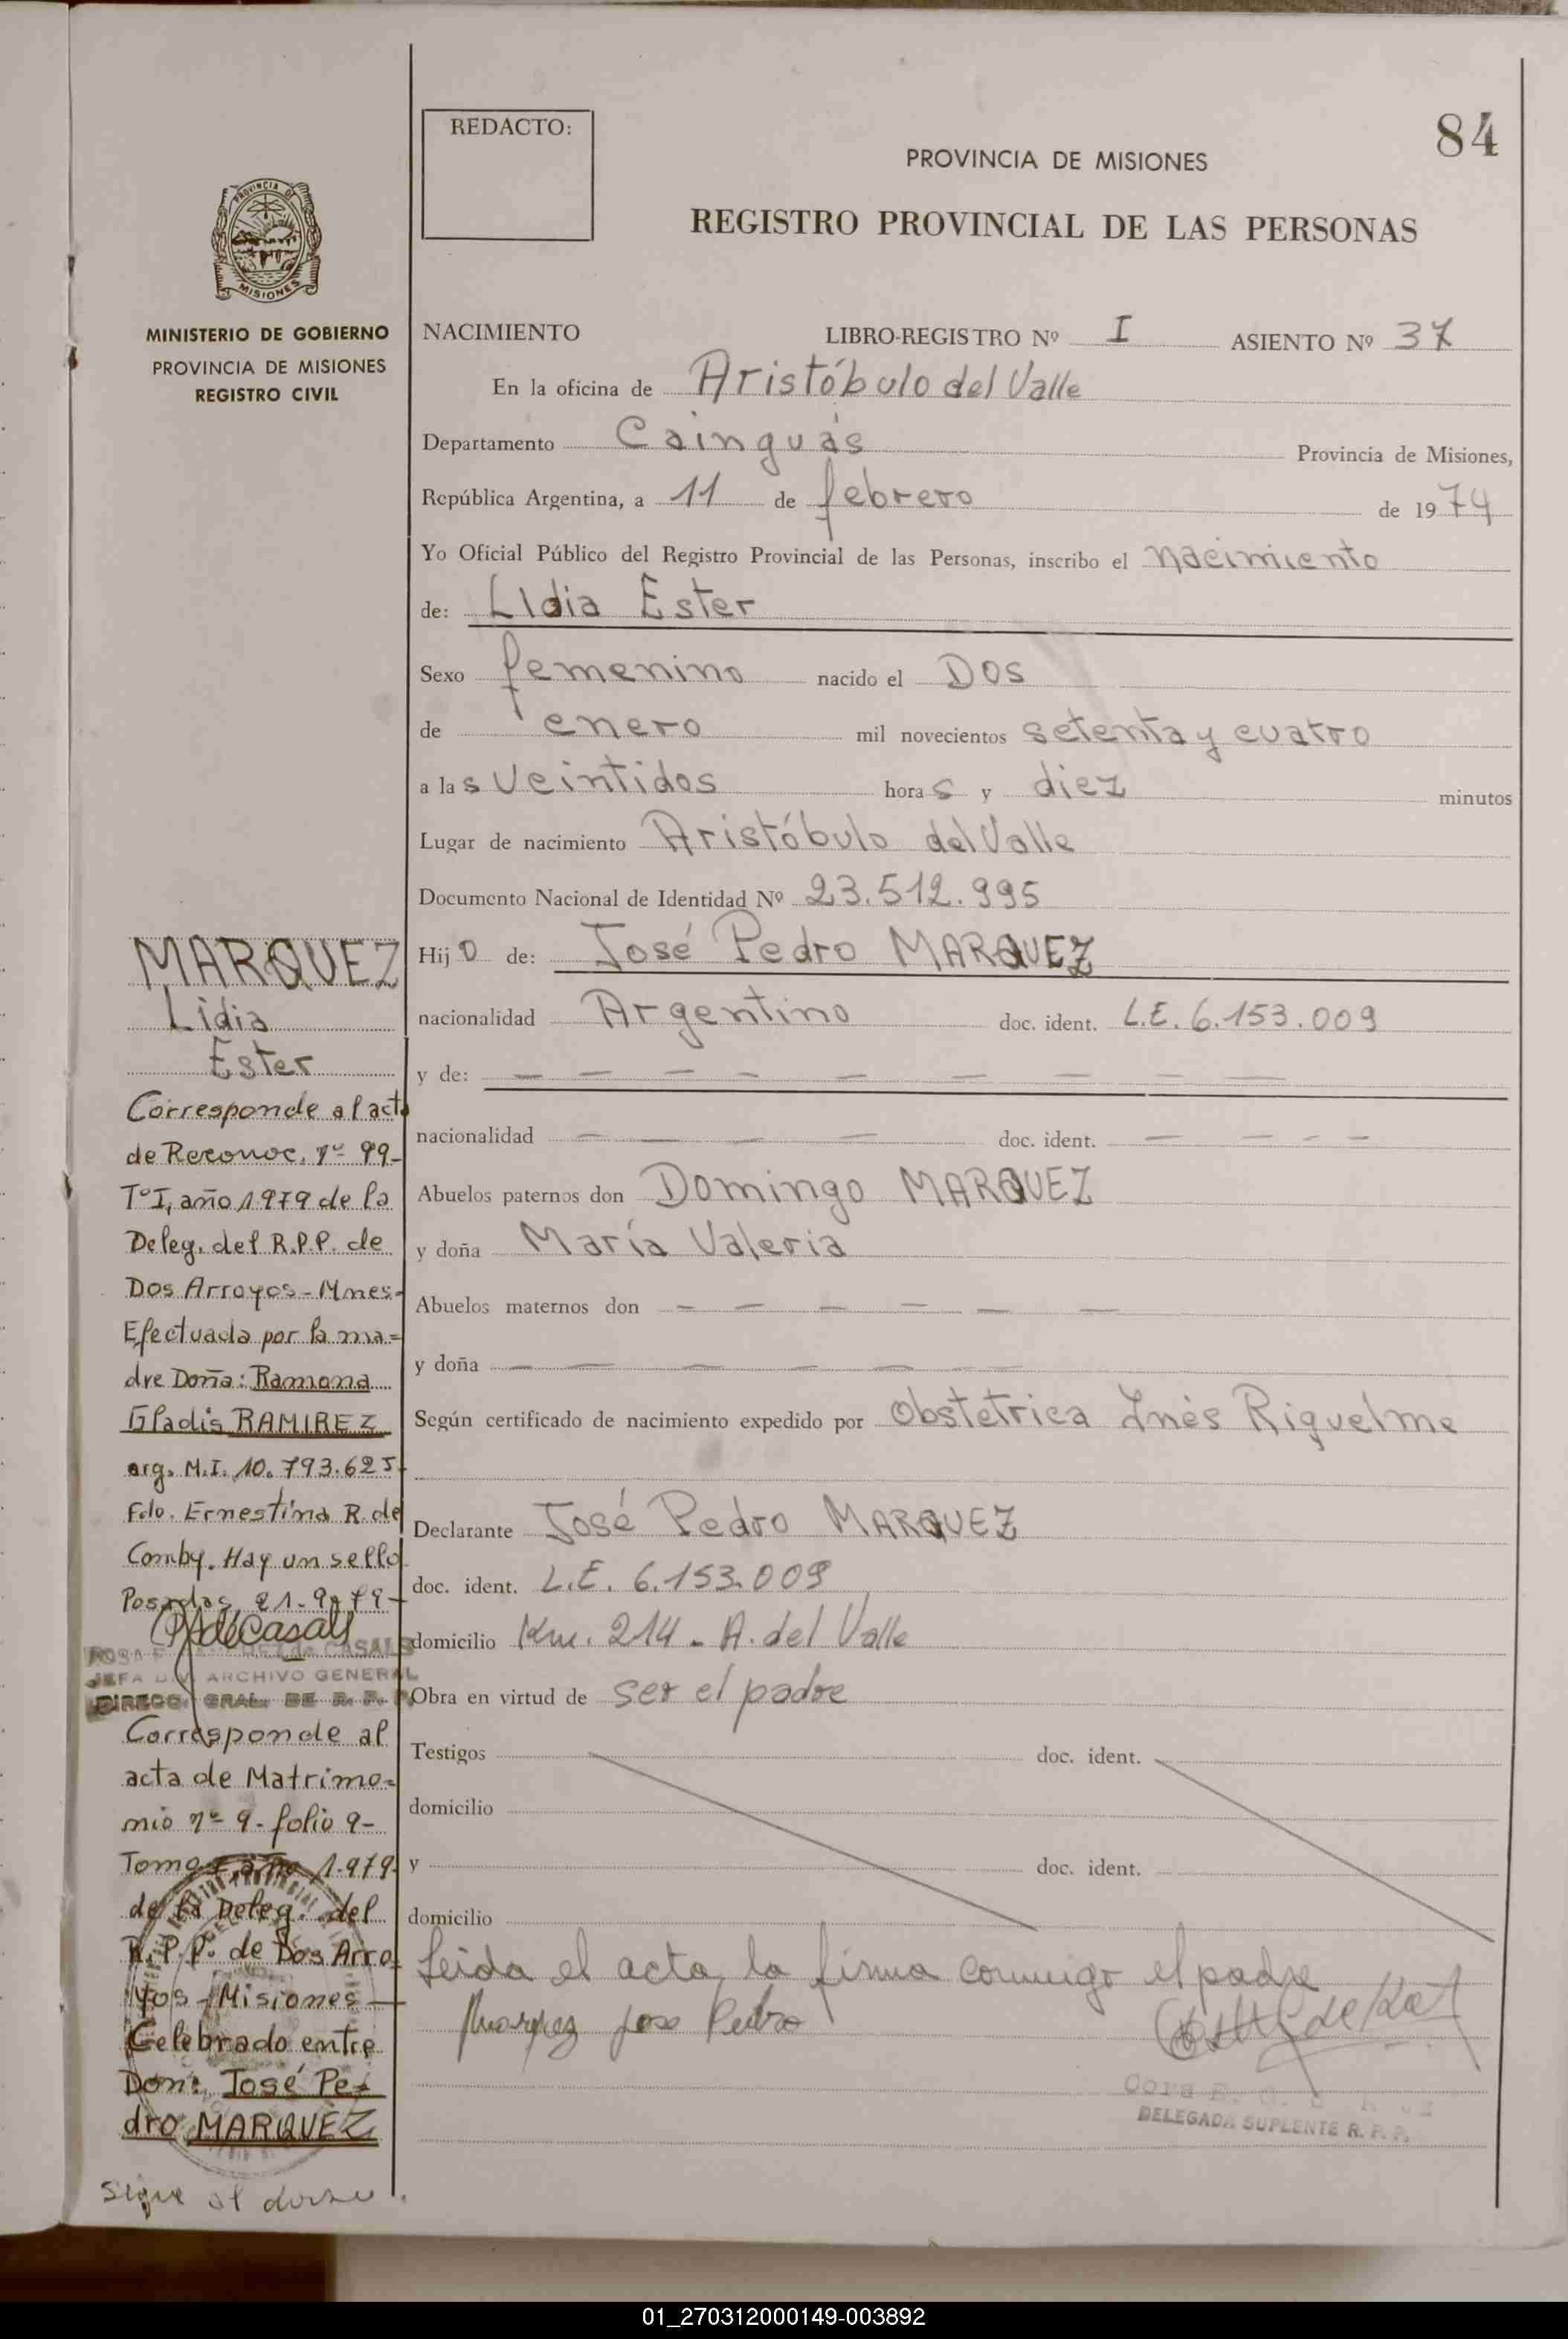 84
REDACTO:
PROVINCIA DE MISIONES
REGISTRO PROVINCIAL DE LAS PERSONAS
PROVINCIA DE
MISIONES
MINISTERIO DE GOBIERNO
PROVINCIA DE MISIONES
REGISTRO CIVIL
NACIMIENTO LIBRO-REGISTRO Nº I ASIENTO Nº 37
En la oficina de Aristóbulo del Valle
Departamento Cainguás Provincia de Misiones,
República Argentina, a 11 de febrero de 1974
Yo Oficial Público del Registro Provincial de las Personas, inscribo el nacimiento
de: Lidia Ester
Sexo femenino nacido el Dos
de enero mil novecientos setenta y cuatro
a las veintidos horas y diez minutos
Lugar de nacimiento Aristóbulo del Valle
Documento Nacional de Identidad Nº 23.512.995
Hijo de: José Pedro MARQUEZ
nacionalidad Argentino doc. ident. L.E. 6.153.009
y de: — — — — — — — —
nacionalidad — — — — doc. ident. — — — —
Abuelos paternos don Domingo MARQUEZ
y doña María Valeria
Abuelos maternos don — — — — — —
y doña — — — — — —
Según certificado de nacimiento expedido por Obstetrica Inés Riquelme
Declarante José Pedro MARQUEZ
doc. ident. L.E. 6.153.009
domicilio Km. 214 - A. del Valle
Obra en virtud de ser el padre
Testigos doc. ident.
domicilio
y doc. ident.
domicilio
Leida el acta, la firma conmigo el padre
Marquez Jose Pedro
DELEGADA SUPLENTE R. P. P.
MARQUEZ
Lidia
Ester
Corresponde al acta
de Reconoc. nº 99-
Tº I, año 1979 de la
Deleg. del R.P.P. de
Dos Arroyos - Mnes-
Efectuada por la ma=
dre Doña: Ramona
Gladis RAMIREZ
arg. M.I. 10.793.625-
Fdo. Ernestina R. de
Comby. Hay un sello
Posadas, 21-9-79-
de CASALS
JEFA DIV. ARCHIVO GENERAL
DIRECC. GRAL. DE R. P. P.
Corresponde al
acta de Matrimo=
nio nº 9 - folio 9-
Tomo I año 1.979.
de la Deleg. del
R.P.P. de Dos Arro
yos - Misiones -
Celebrado entre
Don: José Pe=
dro MARQUEZ
sigue al dorso.
01_270312000149-003892